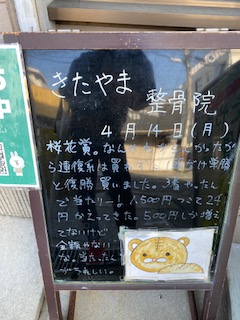 きたやま
整骨院
4月14日(月)
桜花賞。なん
ら連復系は買 だけ単勝
と複勝買いました。3着
で当たりー！1,500円つって24
円かえってきた。500円しか増え
てないけど
金額やない
な。当たった
がうれしい。
中